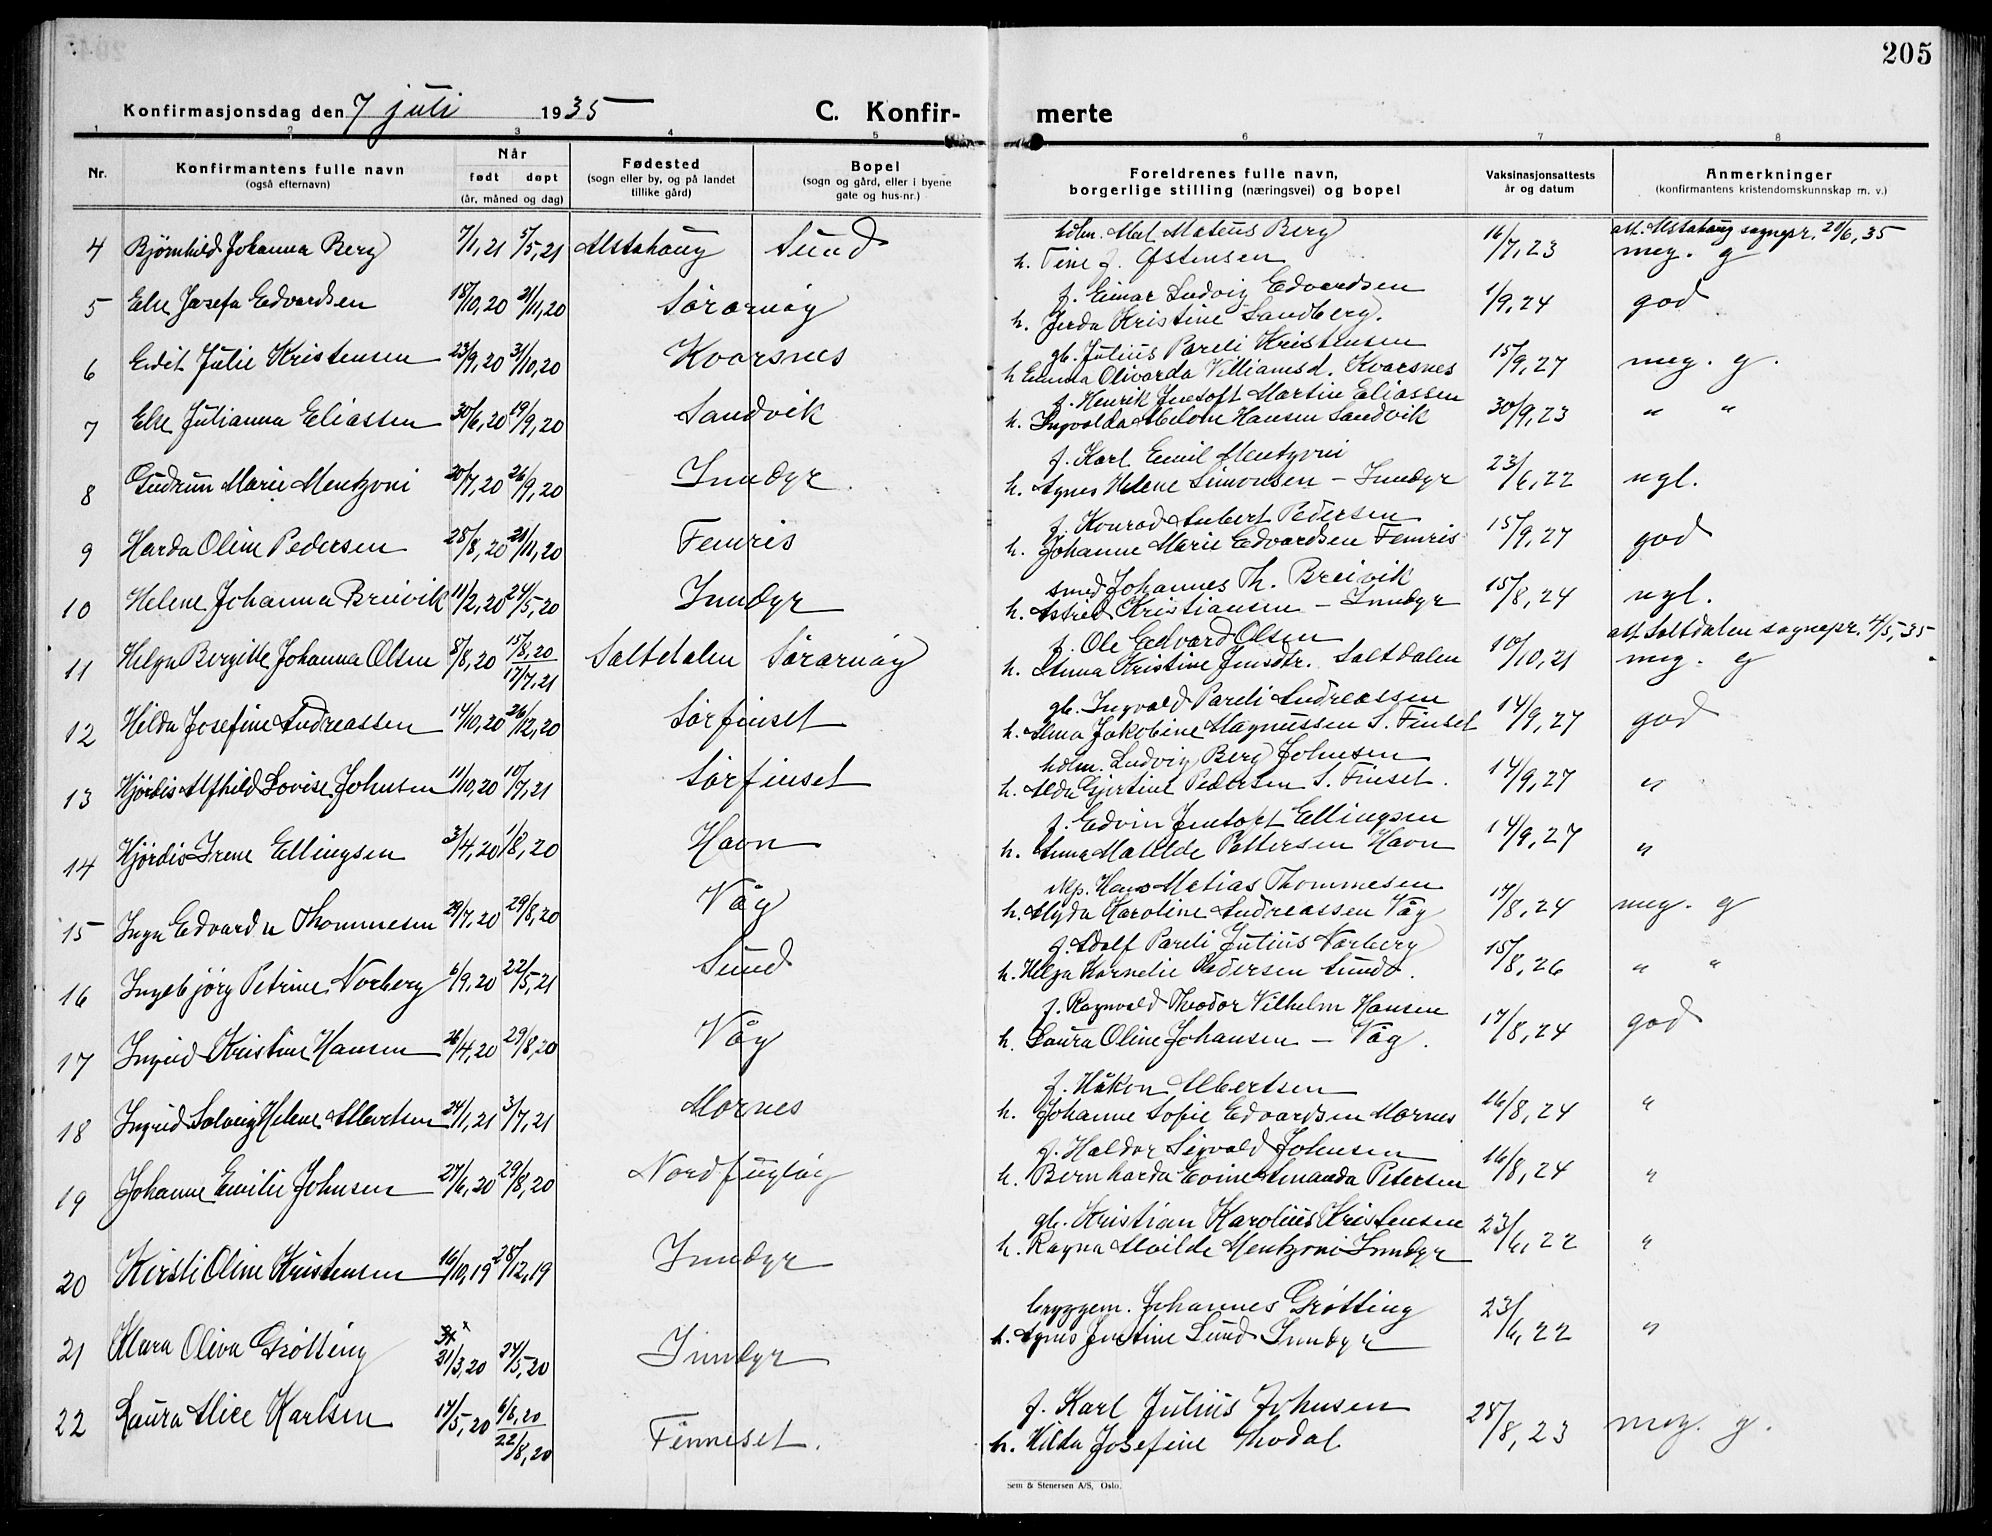 205
Konfirmasjonsdag den 7 juli 1935
C. Konfirmerte
1 2 3 4 5 6 7 8
Nr.
Konfirmantens fulle navn
(også efternavn)
Når
født døpt
(år, måned og dag)
Fødested
(sogn eller by, og på landet
tillike gård)
Bopel
(sogn og gård, eller i byene
gate og hus-nr.)
Foreldrenes fulle navn,
borgerlige stilling (næringsvei) og bopel
Vaksinasjonsattests
år og datum
Anmerkninger
(konfirmantens kristendomskunnskap m. v.)
4 Bjørnhild Johanna Berg 7/1,21 5/5,21 Alstahaug Sund
Mateus Berg 16/7,23 att. Alstahaug sognepr. 20/6,35
h. Tine f. Østensen meg. g
5 Else Josefa Edvardsen 18/10,20 21/11,20 Sørarnøy
f. Einar Ludvig Edvardsen 1/9,24 god
h. Jerda Kristine Sandberg.
6 Edit Julie Kristensen 23/9,20 31/10,20 Kvarsnes
gb. Julius Pareli Kristensen 15/9,27 meg. g.
h Emma Olivarda Villiamsd. Kvarsnes
7 Else Julianna Eliassen 30/6,20 19/9,20 Sandvik
f. Henrik Jentoft Martin Eliassen 30/9,23 " "
h. Ingvalda Hansen Sandvik
8 Gudrun Marie Mentzoni 20/7,20 26/9,20 Inndyr
f. Karl Emil Mentzoni 23/6,22 ngl.
h. Agnes Helene Simonsen – Inndyr
9 Harda Oline Pedersen 28/8,20 21/11,20 Femris
f. Konrad Lubert Pedersen 15/9,27 god
h. Johanne Marie Edvardsen Femris
10 Helene Johanna Breivik 11/2,20 24/5,20 Inndyr
smed Johannes Th. Breivik 15/8,24 ngl.
h. Astrid Kristiansen – Inndyr
11 Helga Bergitte Johanna Olsen 8/8,20 15/8,20 17/7,21 Saltdalen Sørarnøy
f. Ole Edvard Olsen 10/10,21 att. Saltdalen sognepr. 4/5,35
h. Anna Kristine Jensdtr. Saltdalen meg. g
12 Hilda Josefine Andreassen 14/10,20 26/12,20 Sørfinset
gb. Ingvald Pareli Andreassen 14/9,27 god
h. Alma Jakobine Magnussen S. Finset
13 Hjørdis Alfhild Lovise Johnsen 11/10,20 10/7,21 Sørfinset
Ludvig Berg Johnsen 14/9,27 "
h. Alda Gjertine Pedersen S. Finset.
14 Hjørdis Irene Ellingsen 3/4,20 1/8,20 Havn
f. Edvin Jentoft Ellingsen 14/9,27 "
h. Anna Matilde Pettersen Havn
15 Inga Edvarda Thommesen 29/7,20 29/8,20 Våg
Hans Matias Thommesen 17/8,24 meg. g
h. Alyda Karoline Andreassen Våg
16 Ingebjørg Petrine Norberg 6/9,20 22/5,21 Sund
f. Adolf Pareli Julius Norberg 15/8,26 " "
h. Helga Kornelie Pedersen Sund.
17 Ingrid Kristine Hansen 26/4,20 29/8,20 Våg
f. Ragnvald Theodor Vilhelm Hansen 17/8,24 god
h. Laura Oline Johansen – Våg.
18 Ingrid Solveig Helene Albertsen 24/1,21 3/7,21 Mornes
f. Håkon Albertsen 16/8,24 "
h. Johanne Sofie Edvardsen Mornes
19 Johanne Emilie Johnsen 27/6,20 29/8,20 Nordfugløy
f. Haldor Sigvald Johnsen 16/8,24 "
h. Bernharda Evine Amanda Petersen
20 Kirsti Oline Kristensen 16/10,19 28/12,19 Inndyr
gb. Kristian Karolius Kristensen 23/6,22 "
h. Ragna Alvilde Mentzoni Inndyr
21 Klara Oliva Grøtting 31/3,20 24/5,20 Inndyr
bryggem. Johannes Grøtting 23/6,22 "
h. Agnes Justine Lund Inndyr
22 Laura Alice Karlsen 17/5,20 6/6,20 22/8,20 Finneset.
f. Karl Julius Johnsen 28/8,23 meg. g.
h. Hilda Josefine Thodal
Sem & Stenersen A/S, Oslo.